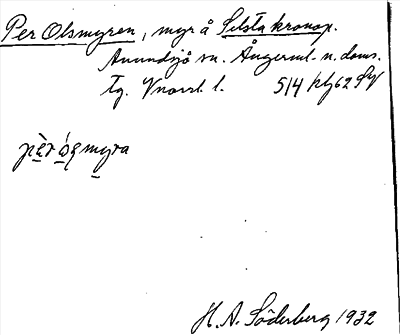 Per Olsmyren, myr å Selsta kronop.
Anundsjö sn. Ångerml. n. doms.
tg. Vnorrl. l. 514 kbg62 SV
pèr ósmyra
H. A. Söderberg 1932